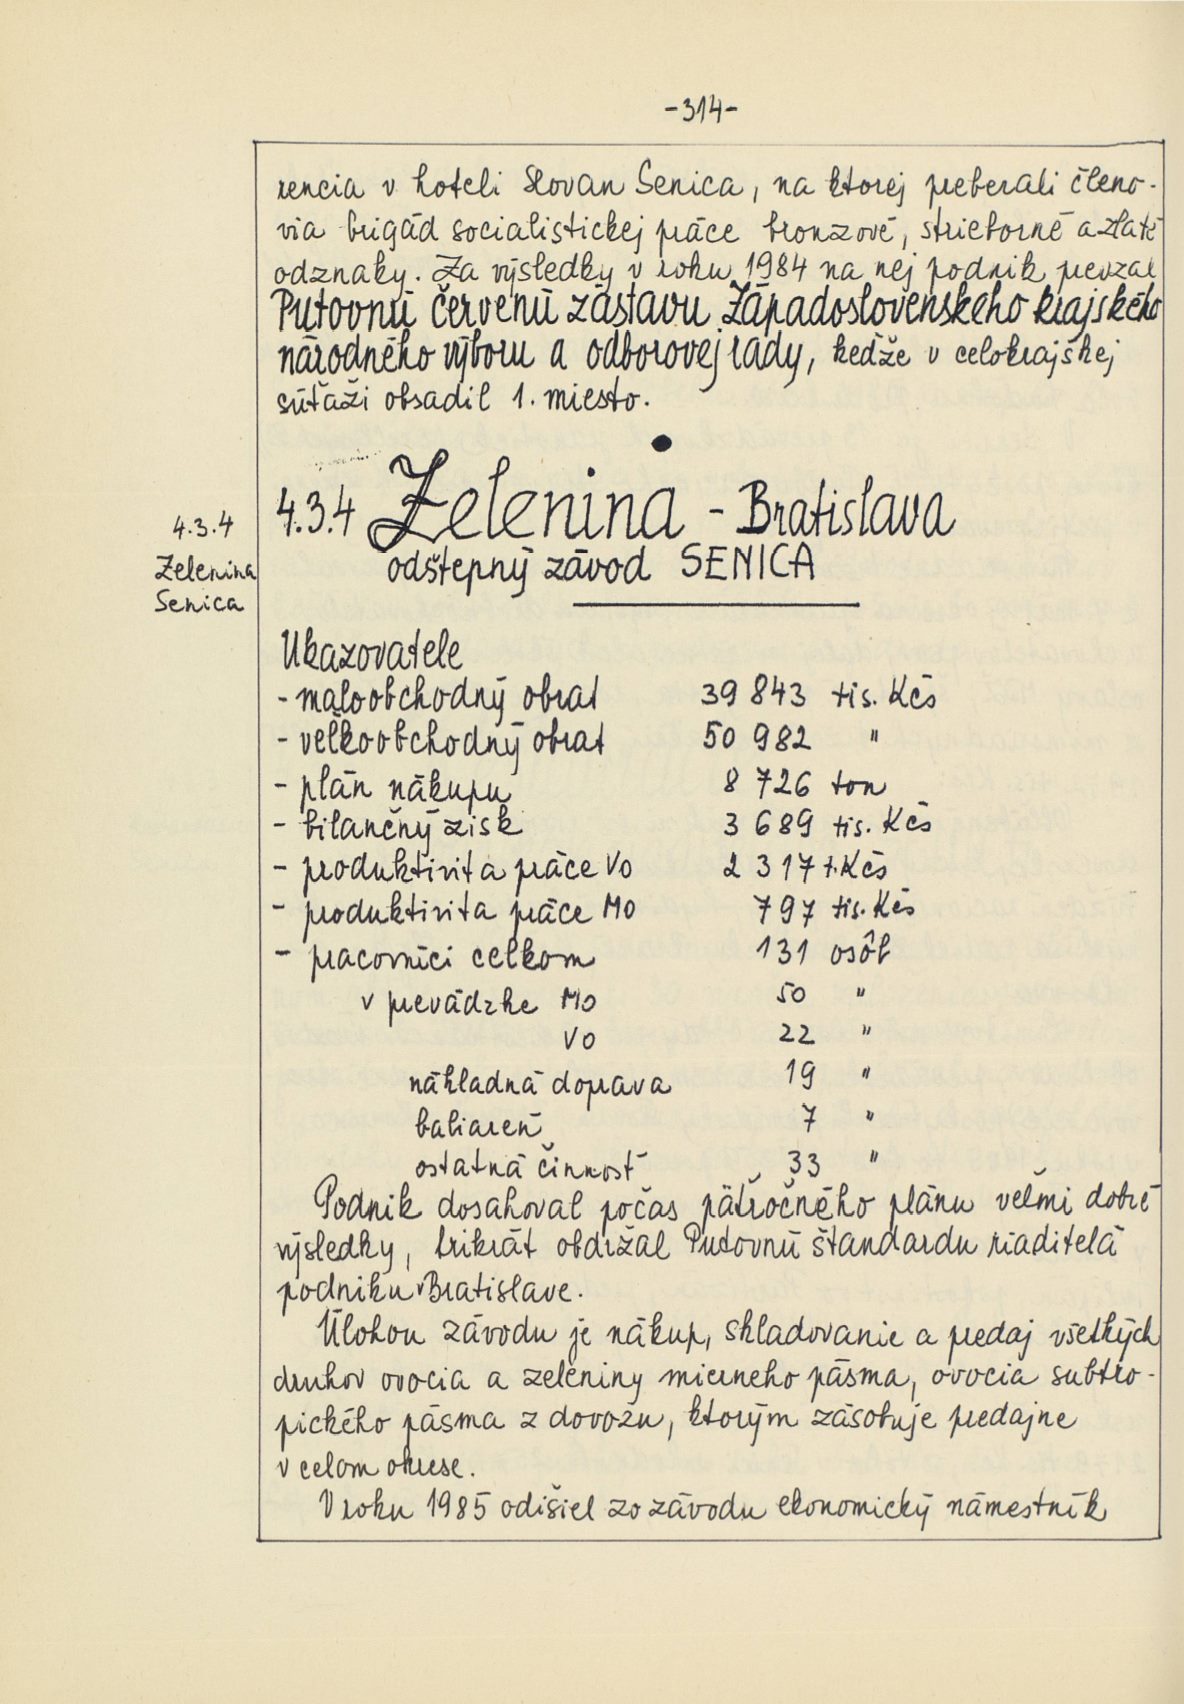 -314-
rencia v hoteli Slovan Senica, na ktorej preberali členo-
via brigád socialistickej práce bronzové, strieborné a zlaté
odznaky. Za výsledky v roku 1984 na nej podnik prevzal
Putovnú červenú zástavu Západoslovenského krajského
národného výboru a odborovej rady, keďže v celokrajskej
súťaži obsadil 1. miesto.
4.3.4 Zelenina - Bratislava
odštepný závod SENICA
4.3.4
Zelenina
Senica
Ukazovatele
- maloobchodný obrat 39 843 tis. Kčs
- veľkoobchodný obrat 50 982 "
- plán nákupu 8 726 ton
- bilančný zisk 3 689 tis. Kčs
- produktivita práce VO 2 317 t. Kčs
- produktivita práce MO 797 tis. Kčs
- pracovníci celkom 131 osôb
v prevádzke MO 50 "
VO 22 "
nákladná doprava 19 "
baliareň 7 "
ostatná činnosť 33 "
Podnik dosahoval počas päťročného plánu veľmi dobré
výsledky, trikrát obdržal Putovnú štandardu riaditeľa
podniku v Bratislave.
Úlohou závodu je nákup, skladovanie a predaj všetkých
druhov ovocia a zeleniny mierneho pásma, ovocia subtro-
pického pásma z dovozu, ktorým zásobuje predajne
v celom okrese.
V roku 1985 odišiel zo závodu ekonomický námestník